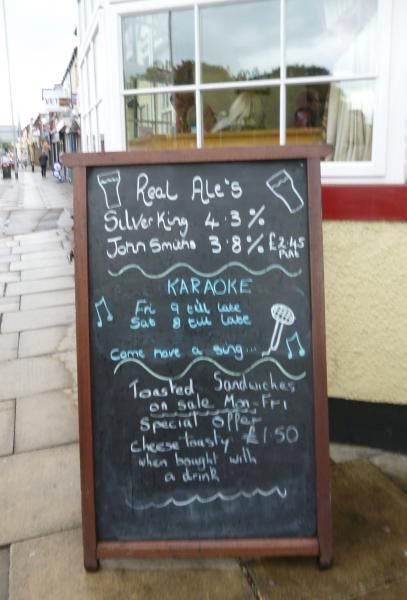 Real Ale's
Silver King 4.3%
John Smiths 3.8% £2.45 Pint
KARAOKE
Fri 9 till late
Sat 8 till late
Come have a sing...
Toasted Sandwiches
on sale Mon-Fri
Special offer
cheese toasty £1.50
when bought with
a drink